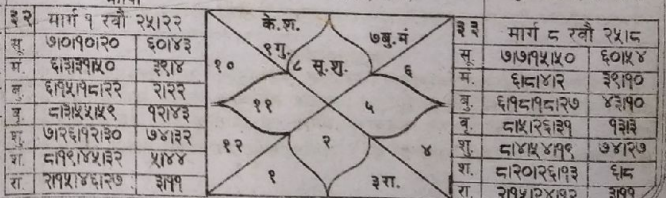 ३२ मार्ग १ रवौ २५।२२
सू. ७।०।१०।२० ६०।४३
मं. ६।३।३१।५० ३९।४
बु. ६।१५।१८।२२ २।२२
बृ. ८।३।५५।५९ १२।४३
शु. ७।२६।१२।३० ७४।३२
श. ८।१९।४५।३२ ५।४४
रा. २।१५।४६।२७ ३।११
के. श.
९ गु.
७ बु. मं
८ सू. शु.
१०
६
११
५
१२
२
४
१
३ रा.
३३ मार्ग ८ रवौ २५।८
सू. ७।७।१५।५० ६०।५४
मं. ६।८।४।२ ३९।१०
बु. ६।१८।१८।२७ ४३।१०
बृ. ८।५।२६।३१ १३।३
शु. ८।४।५४।१९ ७४।२७
श. ८।२०।२६।१३ ६।८
रा. २।१५।२४।१२ ३।११